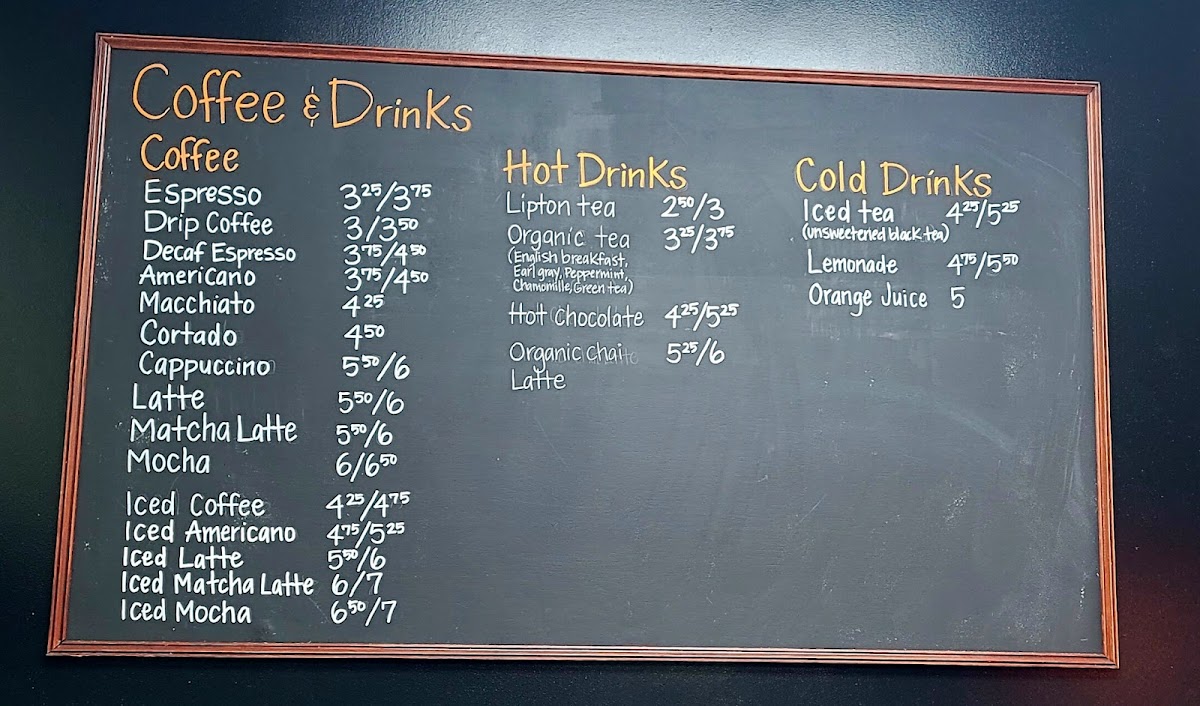 Coffee & Drinks
Coffee
Espresso 3²⁵/3⁷⁵
Drip Coffee 3/3⁵⁰
Decaf Espresso 3⁷⁵/4⁵⁰
Americano 3⁷⁵/4⁵⁰
Macchiato 4²⁵
Cortado 4⁵⁰
Cappuccino 5⁵⁰/6
Latte 5⁵⁰/6
Matcha Latte 5⁵⁰/6
Mocha 6/6⁵⁰
Iced Coffee 4²⁵/4⁷⁵
Iced Americano 4⁷⁵/5²⁵
Iced Latte 5⁵⁰/6
Iced Matcha Latte 6/7
Iced Mocha 6⁵⁰/7
Hot Drinks
Lipton tea 2⁵⁰/3
Organic tea 3²⁵/3⁷⁵
(English breakfast,
Earl gray, Peppermint,
Chamomille, Green tea)
Hot Chocolate 4²⁵/5²⁵
Organic chai 5²⁵/6
Latte
Cold Drinks
Iced tea 4²⁵/5²⁵
(unsweetened black tea)
Lemonade 4⁷⁵/5⁵⁰
Orange Juice 5